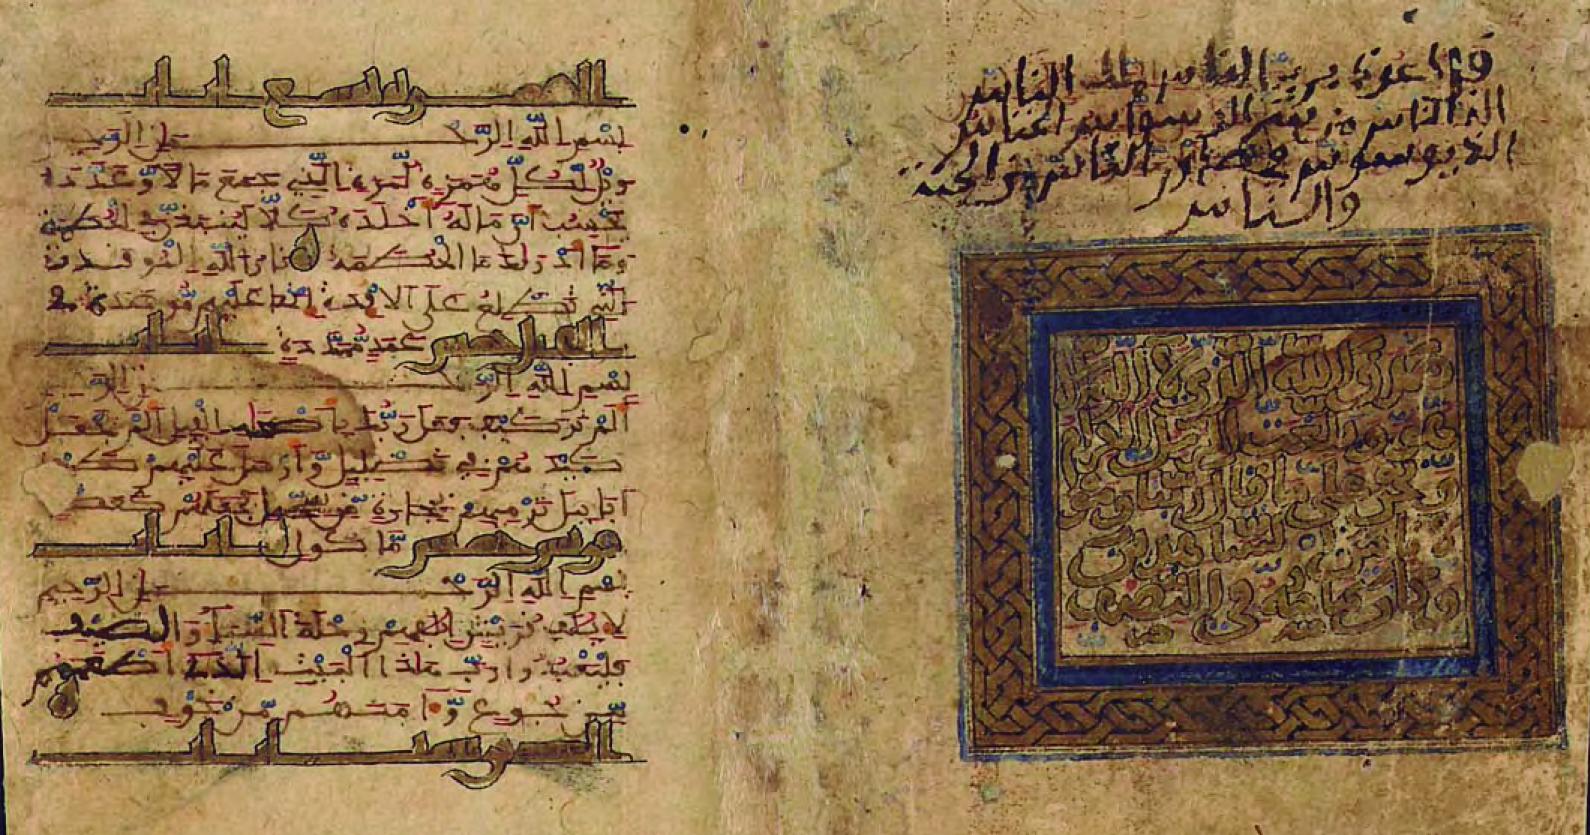 قل اعوذ برب الناس ملك الناس
اله الناس من شر الوسواس الخناس
الذي يوسوس في صدور الناس من الجنة
والناس
صدق الله الذي لا اله الا
ونحن على ما قال ربنا
من الشاهدين
تسع ايات
بسم الله الرحمن الرحيم
ويل لكل همزة لمزة الذي جمع مالا وعدده
يحسب ان ماله اخلده كلا لينبذن في الحطمة
وما ادريك ما الحطمة نار الله الموقدة
التي تطلع على الافدة انها عليهم موصدة في
الفيل خمس عمد ممددة ايات
بسم الله الرحمن الرحيم
الم تر كيف فعل ربك باصحاب الفيل الم يجعل
كيدهم في تضليل وارسل عليهم طيرا
ابابيل ترميهم بحجارة من سجيل فجعلهم كعصف
قريش خمس ماكول ايات
بسم الله الرحمن الرحيم
لايلف قريش الفهم رحلة الشتاء والصيف
فليعبدوا رب هذا البيت الذي اطعمهم
من جوع وامنهم من خوف
ايات